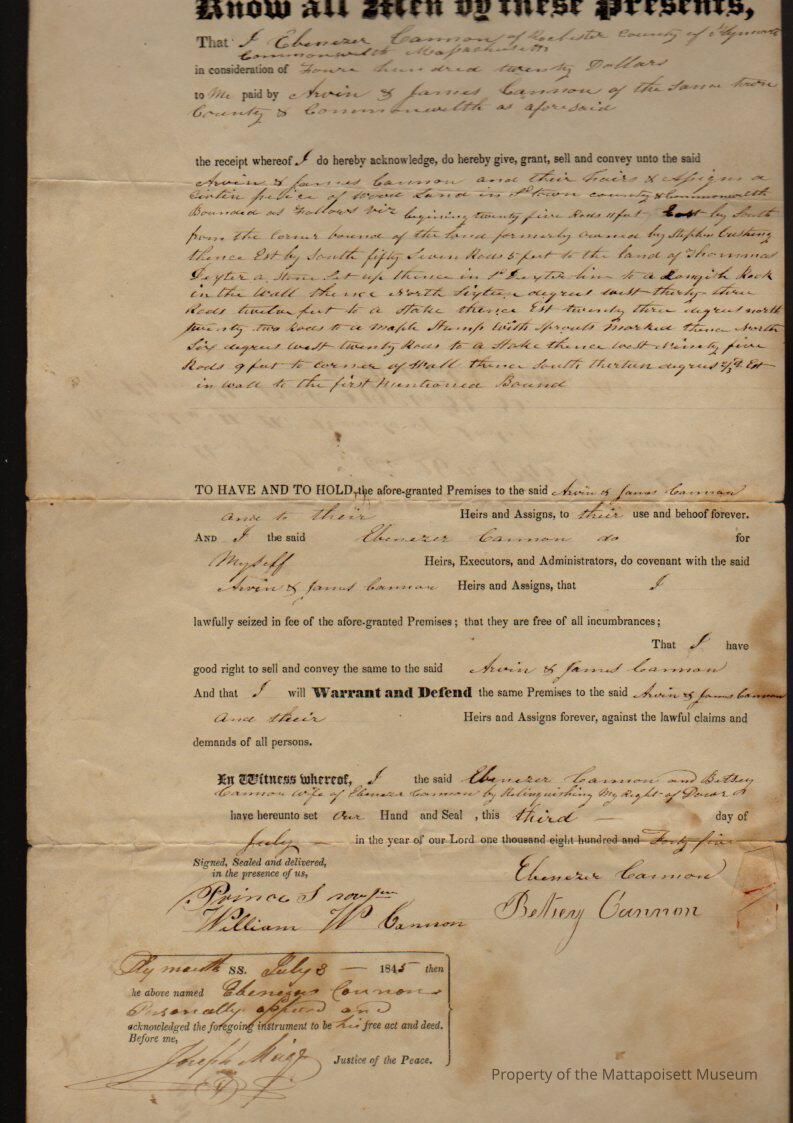 Know all Men by these Presents,
That I Ebenezer Cannon of Rochester County of Plymouth
Commonwelth Massachusetts
in consideration of Foure hundred twenty Dollars
to Me paid by Arvin & James Cannon of the same town
County & Commonwelth as aforesaid
the receipt whereof I do hereby acknowledge, do hereby give, grant, sell and convey unto the said
Arvin & James Cannon and their hairs & Assigns a
peice of Wood Land in sd town county & Commonwelth
Bounded as Follows viz begining twenty five Rods 11 feet East by South
from the corner bound of the land formerly owned by Stephen Cushing
thence Est by South fifty Seven Rods 5 feet to the land of Thommas
Dexter a Stone Set up thence in sd Dexter line to a Rock
in the Wall thence North Sixteen degrees west thirty three
Rods twelve feet to a Stake thence Est twenty three degrees north
twenty two Rods to a maple Stump With Sprouts marked thence North
Six degrees west twenty Rods to a Stake thence west Ninety five
Rods 9 feet to corner of Wall thence South thirteen degrees Est
in wall to the first mentioned Bound
TO HAVE AND TO HOLD, the afore-granted Premises to the said Arvin & James Cannon
and to their Heirs and Assigns, to their use and behoof forever.
AND I the said Ebenezer Cannon do for
Myself Heirs, Executors, and Administrators, do covenant with the said
Arvin & James Cannon Heirs and Assigns, that I
lawfully seized in fee of the afore-granted Premises; that they are free of all incumbrances;
That I have
good right to sell and convey the same to the said Arvin & James Cannon
And that I will Warrant and Defend the same Premises to the said Arvin & James Cannon
and their Heirs and Assigns forever, against the lawful claims and
demands of all persons.
In Witness whereof, I the said Ebenezer Cannon and Betsey
Cannon wife of Ebenezer Cannon by Relinquishing My Right of Dower
have hereunto set our Hand and Seal , this third day of
July in the year of our Lord one thousand eight hundred and Forty five
Signed, Sealed and delivered,
in the presence of us,
Ebenezer Cannon
Prince
Betsey Cannon
William W Cannon
Plymouth SS. July 3 — 1845 then
he above named Ebenezer Cannon
Personally and
acknowledged the foregoing instrument to be his free act and deed.
Before me,
Joseph Meigs Justice of the Peace.
Property of the Mattapoisett Museum